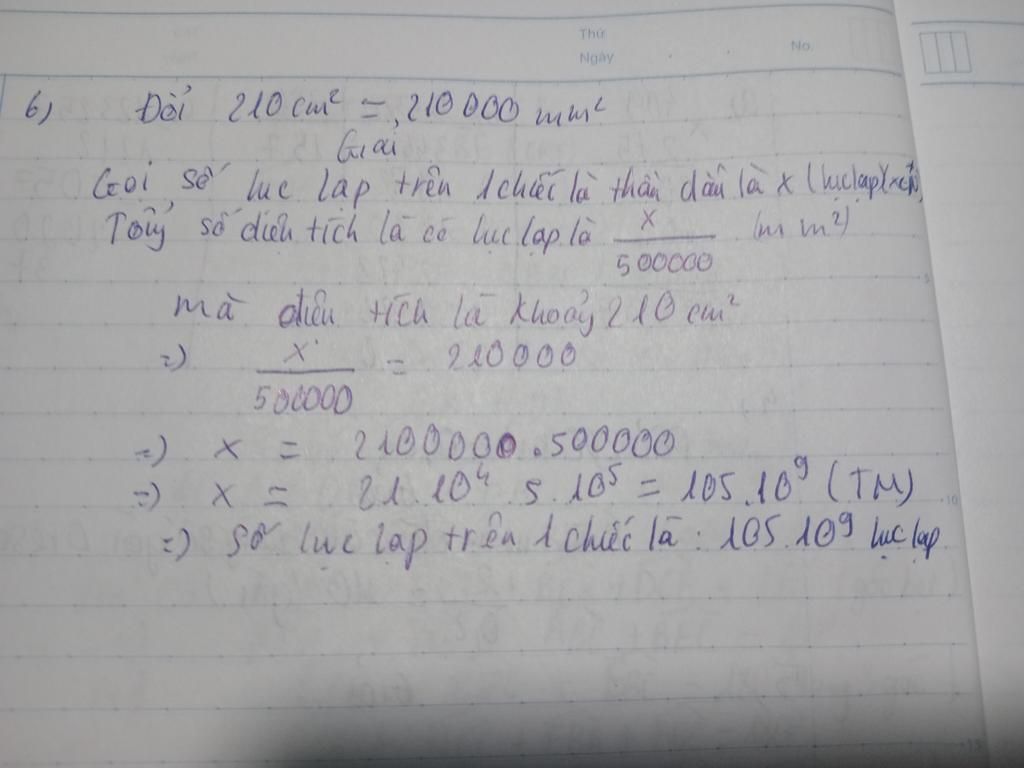 Thứ
Ngày
No.
6) Đổi 210 cm² = 210 000 mm²
Giải
Gọi số lục lạp trên 1 chiếc lá thầu dầu là x (lục lạp)
Tổng số diện tích lá có lục lạp là x/500000 (mm²)
mà diện tích lá khoảng 210 cm²
=) x/500000 = 210000
=) x = 2100000.500000
=) x = 21.10⁴ 5.10⁵ = 105.10⁹ (TM)
=) số lục lạp trên 1 chiếc là : 105.10⁹ lục lạp
10